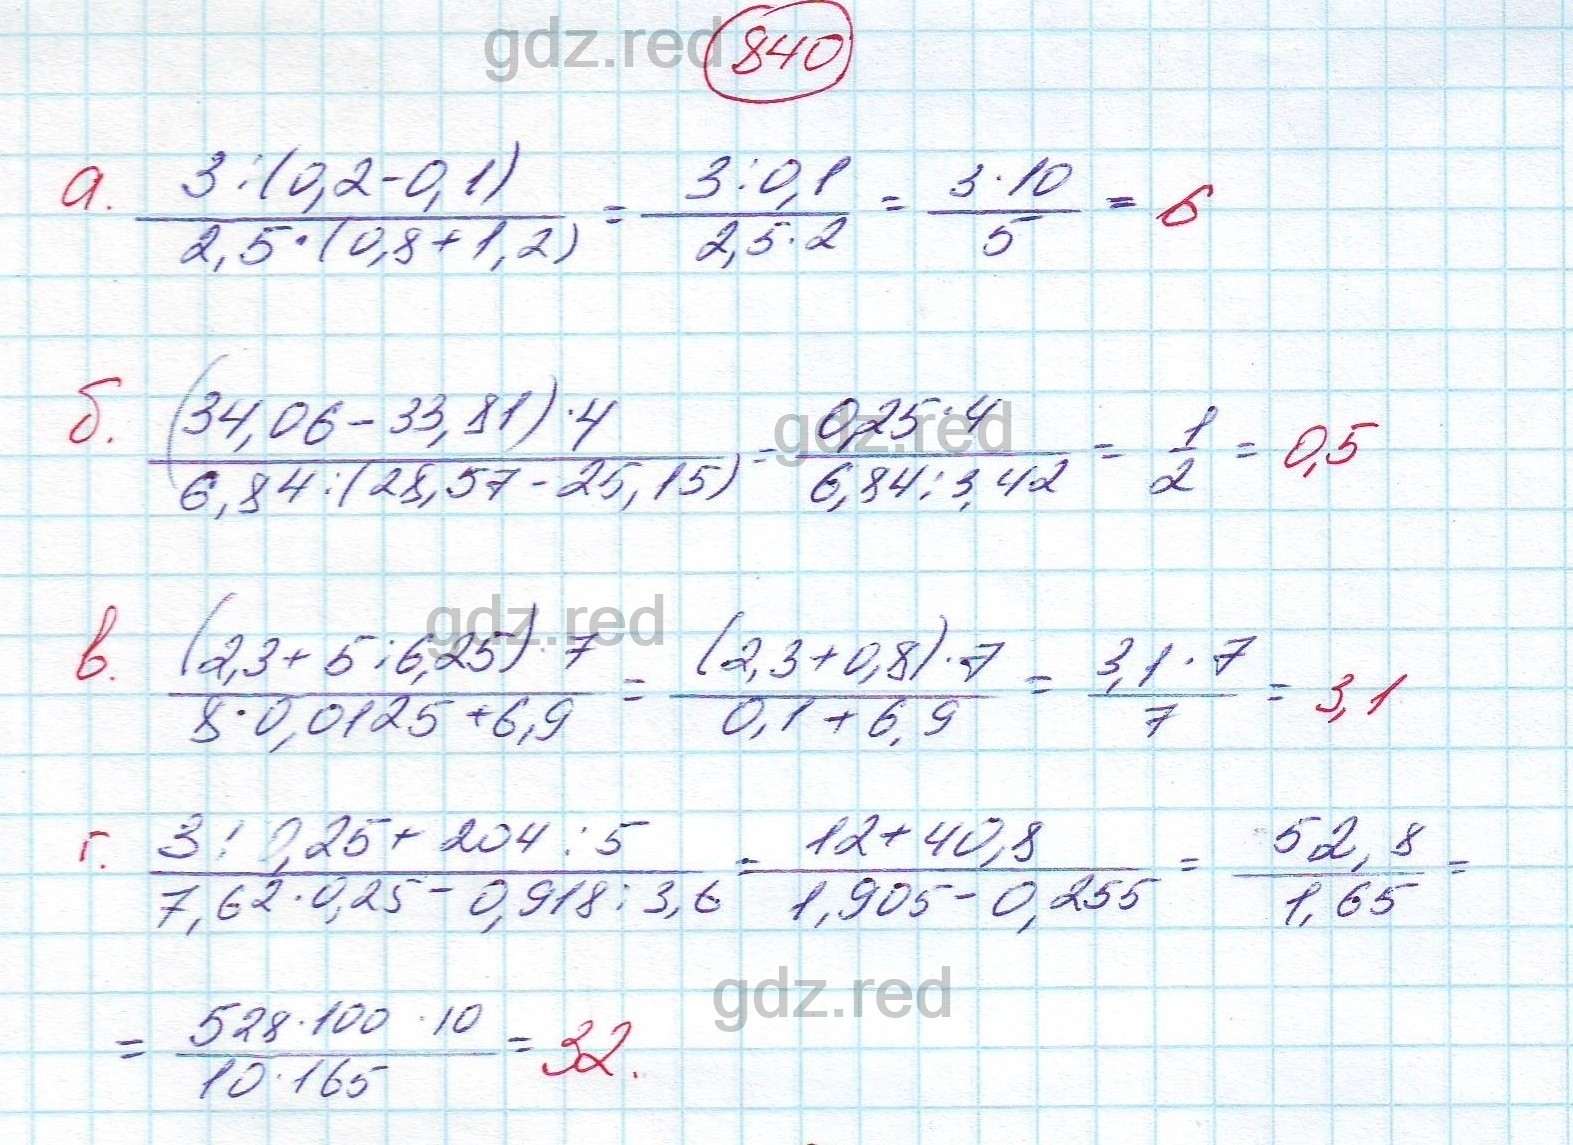 gdz.red
840
а. 3:(0,2-0,1) / 2,5·(0,8+1,2) = 3:0,1 / 2,5·2 = 3·10 / 5 = 6
б. (34,06-33,81)·4 / 6,84:(28,57-25,15) = 0,25·4 / 6,84:3,42 = 1/2 = 0,5
gdz.red
в. (2,3+5:6,25)·7 / 8·0,0125+6,9 = (2,3+0,8)·7 / 0,1+6,9 = 3,1·7 / 7 = 3,1
gdz.red
г. 3:0,25+204:5 / 7,62·0,25-0,918:3,6 = 12+40,8 / 1,905-0,255 = 52,8 / 1,65 =
= 528·100·10 / 10·165 = 32.
gdz.red